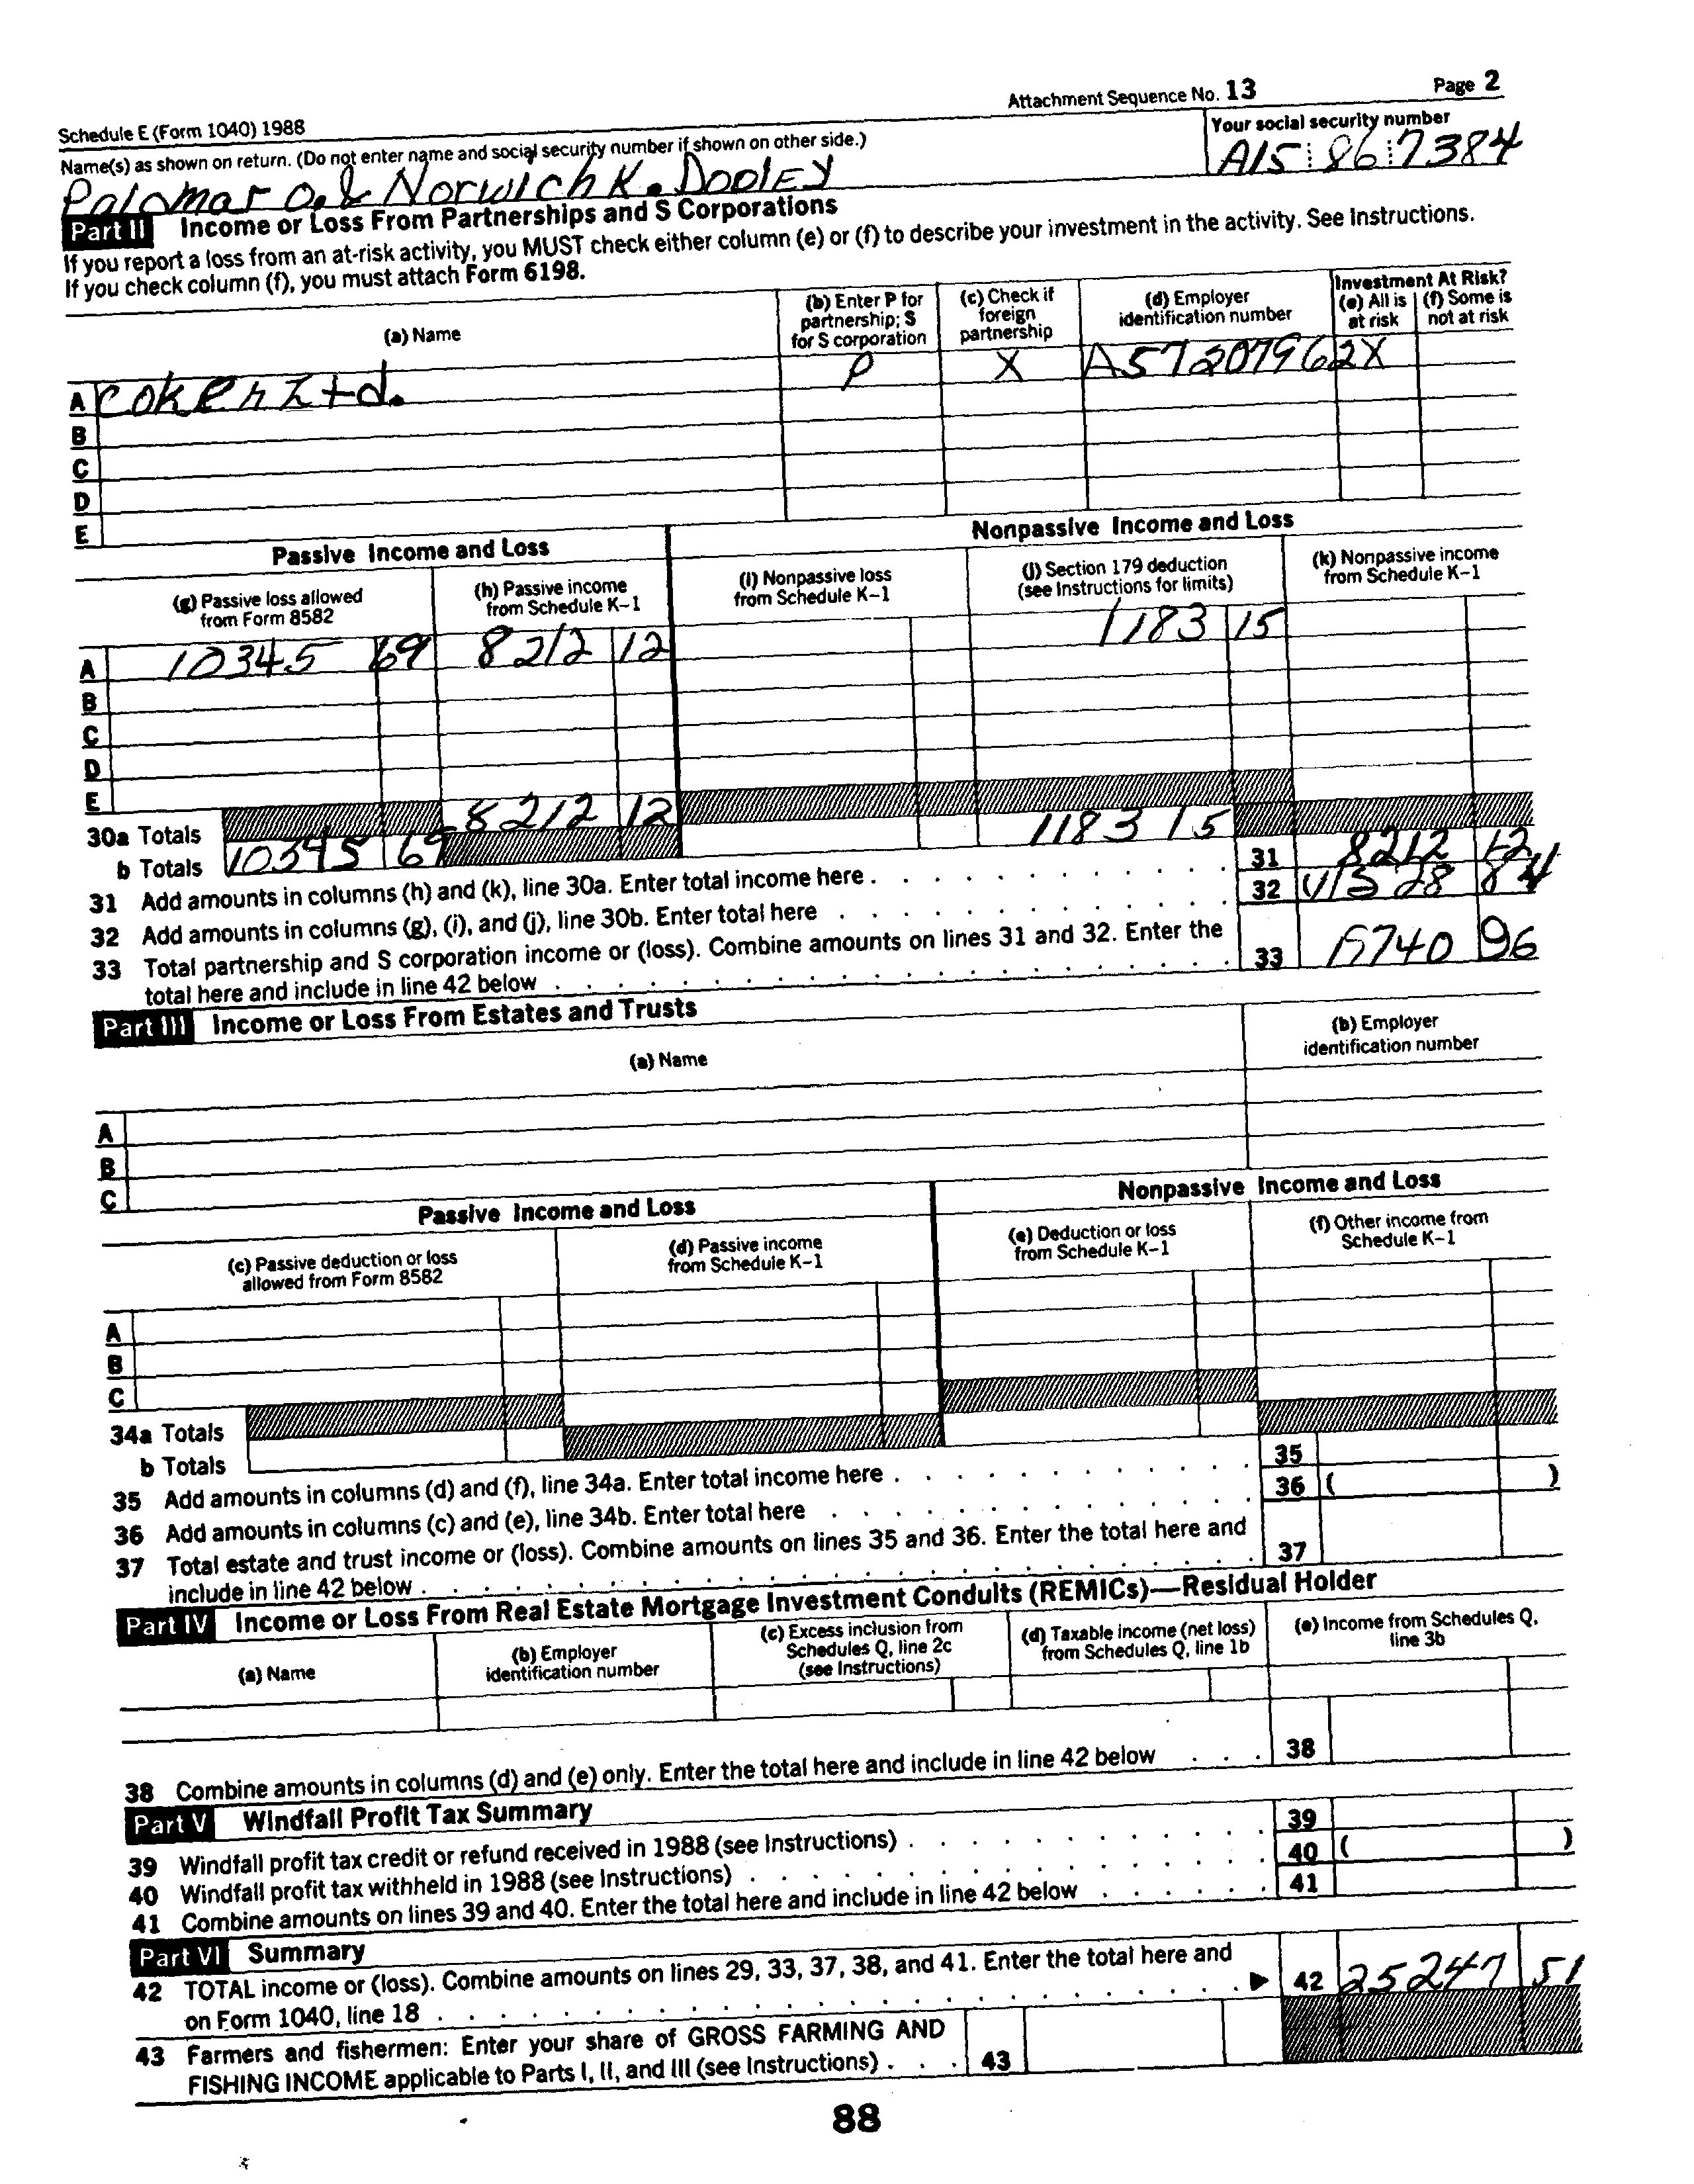 Schedule E (Form 1040) 1988 Attachment Sequence No. 13 Page 2
Name(s) as shown on return. (Do not enter name and social security number if shown on other side.) Your social security number
Palomar O. & Norwich K. Dooley A15 86 7384
Part II Income or Loss From Partnerships and S Corporations
If you report a loss from an at-risk activity, you MUST check either column (e) or (f) to describe your investment in the activity. See Instructions.
If you check column (f), you must attach Form 6198.
(a) Name (b) Enter P for partnership; S for S corporation (c) Check if foreign partnership (d) Employer identification number Investment At Risk? (e) All is at risk (f) Some is not at risk
A Coken Ltd. P X A57207962 X
B
C
D
E
Passive Income and Loss Nonpassive Income and Loss
(g) Passive loss allowed from Form 8582 (h) Passive income from Schedule K-1 (i) Nonpassive loss from Schedule K-1 (j) Section 179 deduction (see Instructions for limits) (k) Nonpassive income from Schedule K-1
A 10345 69 8212 12 1183 15
B
C
D
E
30a Totals 8212 12
b Totals 10345 69 1183 15
31 Add amounts in columns (h) and (k), line 30a. Enter total income here . 31 8212 12
32 Add amounts in columns (g), (i), and (j), line 30b. Enter total here . 32 (11528 84
33 Total partnership and S corporation income or (loss). Combine amounts on lines 31 and 32. Enter the
total here and include in line 42 below . 33 19740 96
Part III Income or Loss From Estates and Trusts
(a) Name (b) Employer identification number
A
B
C
Passive Income and Loss Nonpassive Income and Loss
(c) Passive deduction or loss allowed from Form 8582 (d) Passive income from Schedule K-1 (e) Deduction or loss from Schedule K-1 (f) Other income from Schedule K-1
A
B
C
34a Totals
b Totals
35 Add amounts in columns (d) and (f), line 34a. Enter total income here . 35
36 Add amounts in columns (c) and (e), line 34b. Enter total here . 36 ( )
37 Total estate and trust income or (loss). Combine amounts on lines 35 and 36. Enter the total here and
include in line 42 below . 37
Part IV Income or Loss From Real Estate Mortgage Investment Conduits (REMICs)—Residual Holder
(a) Name (b) Employer identification number (c) Excess inclusion from Schedules Q, line 2c (see Instructions) (d) Taxable income (net loss) from Schedules Q, line 1b (e) Income from Schedules Q, line 3b
38 Combine amounts in columns (d) and (e) only. Enter the total here and include in line 42 below . 38
Part V Windfall Profit Tax Summary
39 Windfall profit tax credit or refund received in 1988 (see Instructions) . 39
40 Windfall profit tax withheld in 1988 (see Instructions) . 40 ( )
41 Combine amounts on lines 39 and 40. Enter the total here and include in line 42 below . 41
Part VI Summary
42 TOTAL income or (loss). Combine amounts on lines 29, 33, 37, 38, and 41. Enter the total here and
on Form 1040, line 18 . ▶ 42 25247 51
43 Farmers and fishermen: Enter your share of GROSS FARMING AND
FISHING INCOME applicable to Parts I, II, and III (see Instructions) . 43
88